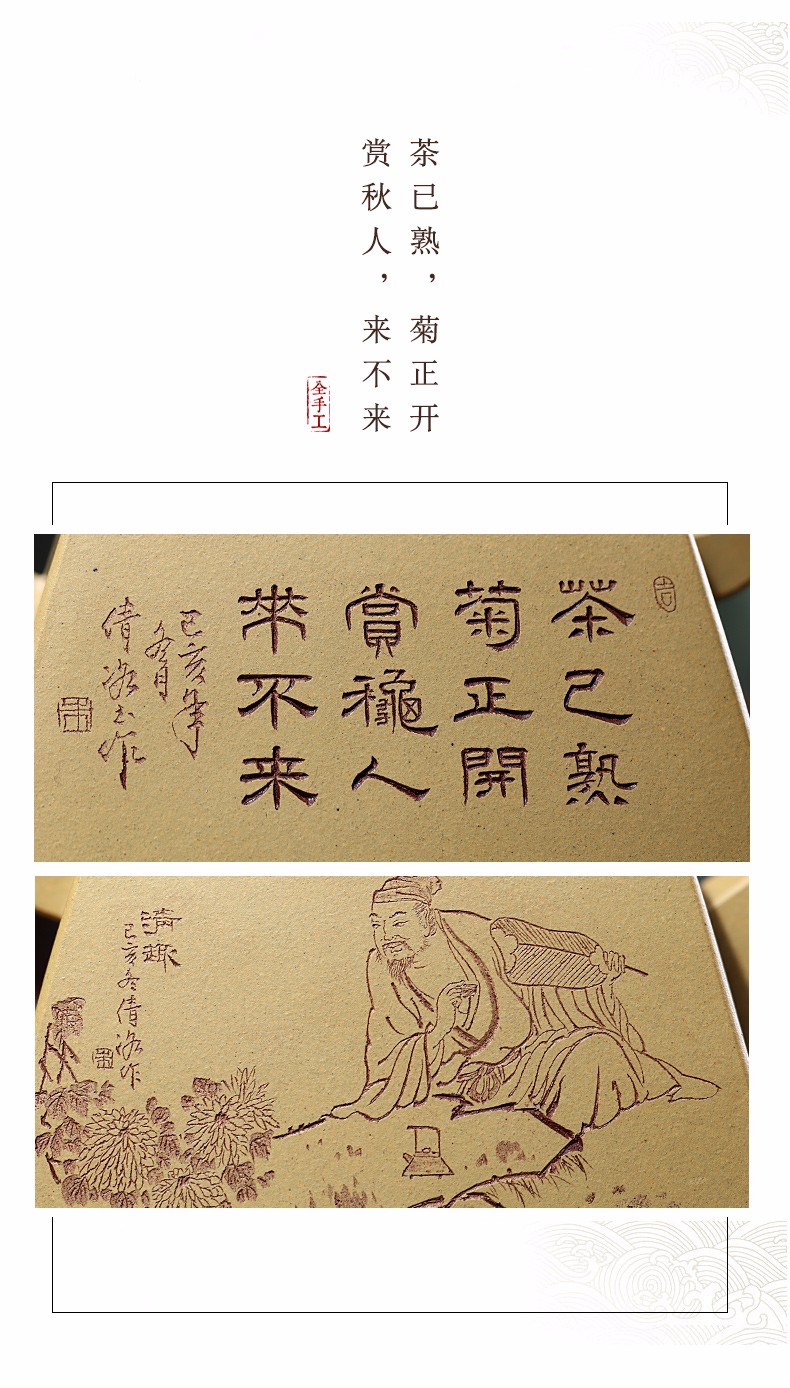 茶已熟，菊正开
赏秋人，来不来
全手工
茶已熟
菊正開
賞龝人
来不来
己亥年
冬月
倩洛士作
清趣
己亥冬倩洛作